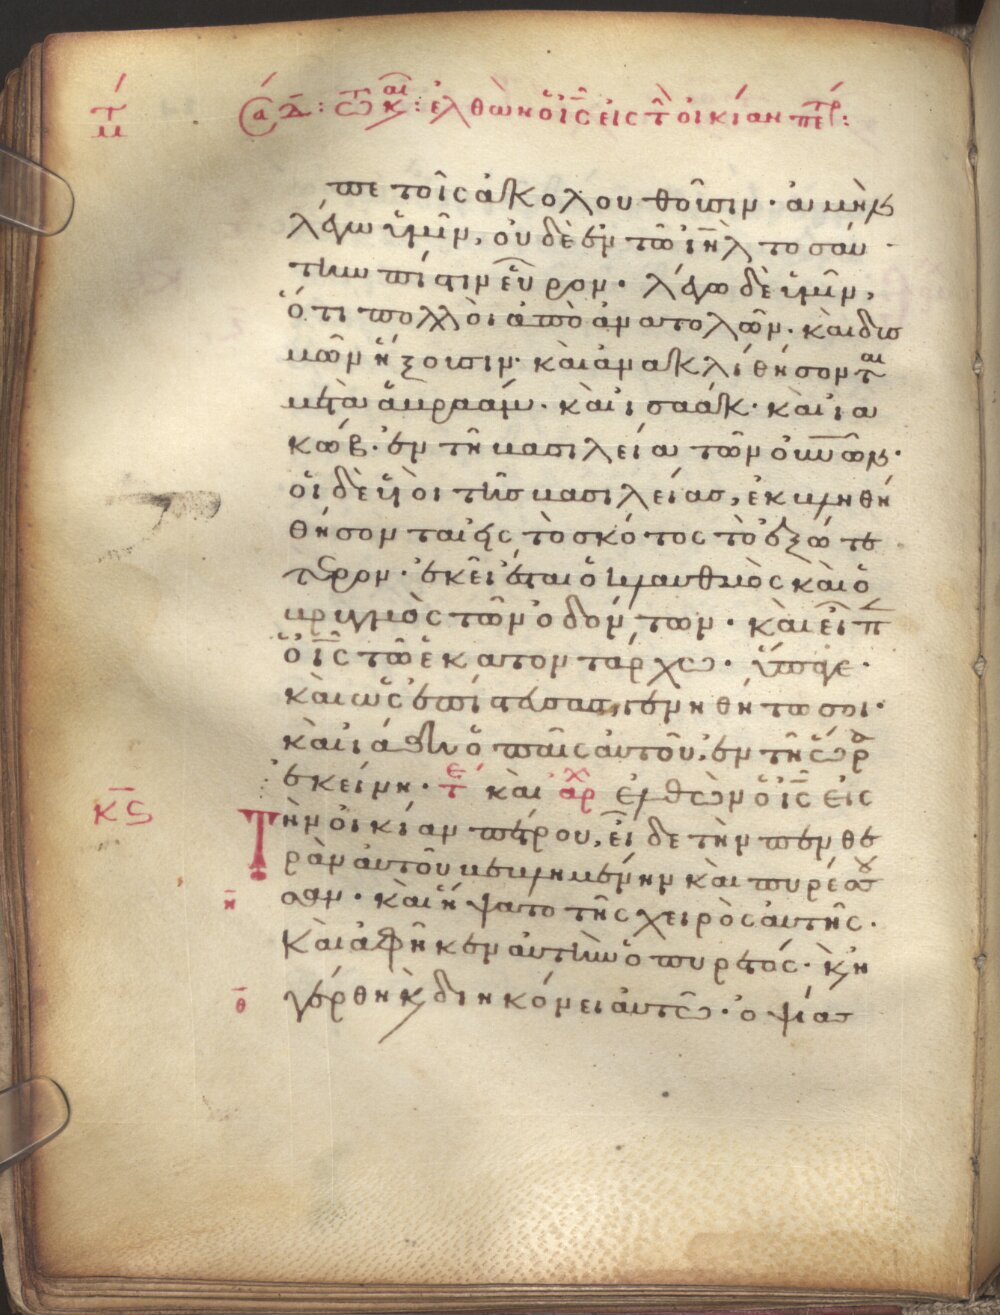 Σα Δ : τω κ αι : ἐλθὼν ὁ ἰς εἰς τ οἰκίαν πετρ :
πε τοῖς ἀκολουθοῦσιν · ἀμὴν
λέγω ὑμῖν, οὐδὲ ἐν τῶ ἰηλ τοσαύ
την πίστιν εὗρον · λέγω δὲ ὑμῖν,
ὅτι πολλοὶ ἀπὸ ἀνατολῶν · καὶ δυσ
μῶν ἥξουσιν · καὶ ἀνακλιθήσονται
μετὰ ἀβραάμ · καὶ ἰσαάκ · καὶ ἰα
κώβ · ἐν τῆ βασιλεία τῶν οὐνῶν ·
οἱ δὲ υἱοὶ τῆς βασιλείας, ἐκβληθή
θήσονται εἰς τὸ σκότος τὸ ἐξώτε
τερον · ἐκεῖ ἔσται ὁ κλαυθμὸς καὶ ὁ
βρυγμὸς τῶν ὀδόντων · καὶ εἶπ
ὁ ἰς τῶ ἑκατοντάρχω · ὕπαγε ·
καὶ ὡς ἐπίστευσας, γενηθήτω σοι ·
καὶ ἰάθη ὁ παῖς αὐτοῦ, ἐν τῆ ὥρα
ἐκείνη · τε καὶ ἀρχ ἐλθὼν ὁ ἰς εἰς
κς
Τὴν οἰκίαν πέτρου, εἶδε τὴν πενθε
ρὰν αὐτοῦ βεβλημένην καὶ πυρέσ
η
σουσαν · καὶ ἥψατο τῆς χειρὸς αὐτῆς ·
Καὶ ἀφῆκεν αὐτὴν ὁ πυρετός · κ ἠ
θ
γέρθη κ διηκόνει αὐτῶ · ὀψίασ